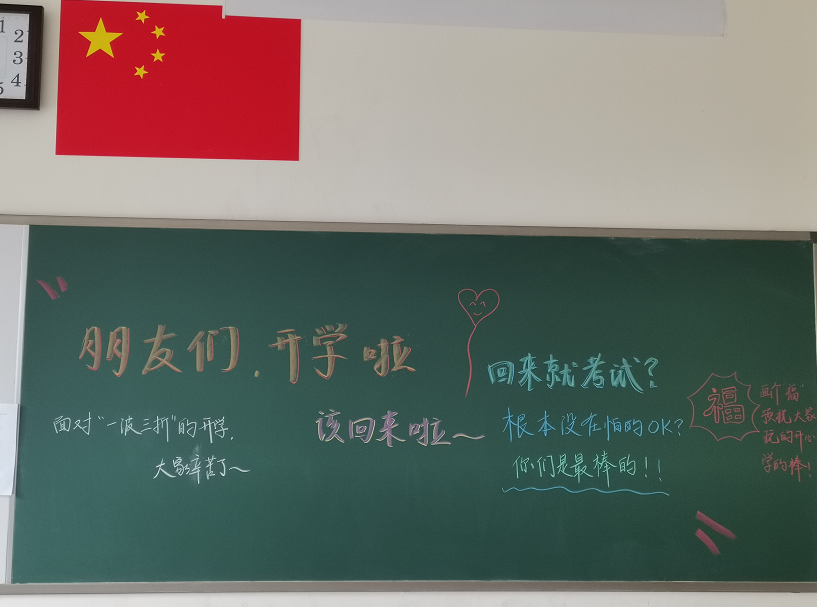 1
2
3
4
5
朋友们.开学啦
面对"一波三折"的开学,
大家辛苦了~
该回来啦~
回来就考试?
根本没在怕的OK?
你们是最棒的!!
福
画个"福"
预祝大家
玩的开心
学的棒!